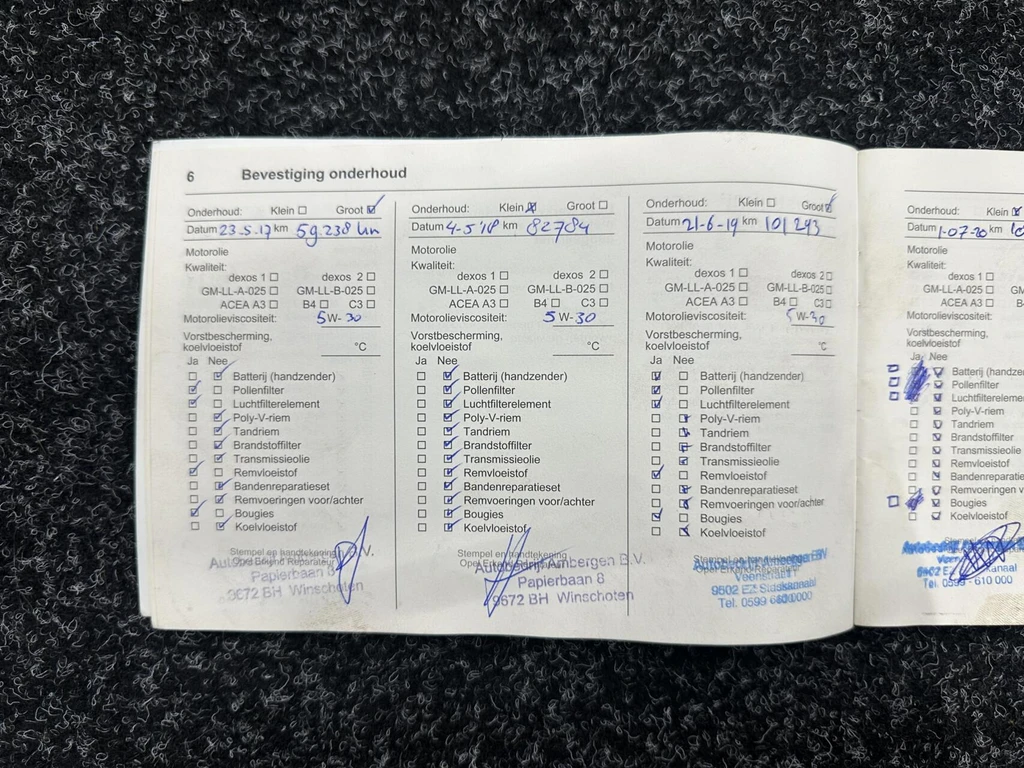 6 Bevestiging onderhoud
Onderhoud: Klein Groot
Datum 23.5.17 km 59.238 km
Motorolie
Kwaliteit:
dexos 1 dexos 2
GM-LL-A-025 GM-LL-B-025
ACEA A3 B4 C3
Motorolieviscositeit: 5W-30
Vorstbescherming,
koelvloeistof °C
Ja Nee
Batterij (handzender)
Pollenfilter
Luchtfilterelement
Poly-V-riem
Tandriem
Brandstoffilter
Transmissieolie
Remvloeistof
Bandenreparatieset
Remvoeringen voor/achter
Bougies
Koelvloeistof
Stempel en handtekening
Opel Erkend Reparateur
Papierbaan 8
9672 BH Winschoten
Onderhoud: Klein Groot
Datum 4-5'18 km 82784
Motorolie
Kwaliteit:
dexos 1 dexos 2
GM-LL-A-025 GM-LL-B-025
ACEA A3 B4 C3
Motorolieviscositeit: 5W-30
Vorstbescherming,
koelvloeistof °C
Ja Nee
Batterij (handzender)
Pollenfilter
Luchtfilterelement
Poly-V-riem
Tandriem
Brandstoffilter
Transmissieolie
Remvloeistof
Bandenreparatieset
Remvoeringen voor/achter
Bougies
Koelvloeistof
Stempel en handtekening
Opel Erkend Reparateur
Autobedrijf Ambergen B.V.
Papierbaan 8
9672 BH Winschoten
Onderhoud: Klein Groot
Datum 21-6-19 km 101293
Motorolie
Kwaliteit:
dexos 1 dexos 2
GM-LL-A-025 GM-LL-B-025
ACEA A3 B4 C3
Motorolieviscositeit: 5W-30
Vorstbescherming,
koelvloeistof °C
Ja Nee
Batterij (handzender)
Pollenfilter
Luchtfilterelement
Poly-V-riem
Tandriem
Brandstoffilter
Transmissieolie
Remvloeistof
Bandenreparatieset
Remvoeringen voor/achter
Bougies
Koelvloeistof
Stempel en handtekening
Opel Erkend Reparateur
9502 EZ Stadskanaal
Tel. 0599
Onderhoud: Klein
Datum 1-07-20 km
Motorolie
Kwaliteit:
dexos 1
GM-LL-A-025
ACEA A3
Motorolieviscositeit:
Vorstbescherming,
koelvloeistof
Ja Nee
Batterij (handzender)
Pollenfilter
Luchtfiltereleme
Poly-V-riem
Tandriem
Brandstoffilter
Transmissieolie
Remvloeistof
Bandenreparaties
Remvoeringen v
Bougies
Koelvloeistof
Tel. 0599 - 610 000